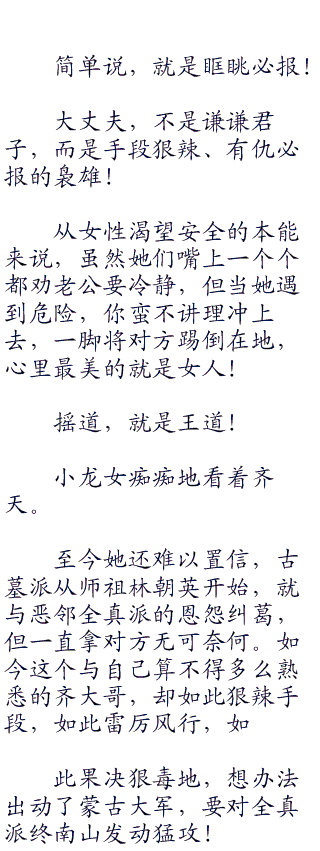 简单说，就是眶眺必报！
大丈夫，不是谦谦君
子，而是手段狠辣、有仇必
报的枭雄！
从女性渴望安全的本能
来说，虽然她们嘴上一个个
都劝老公要冷静，但当她遇
到危险，你蛮不讲理冲上
去，一脚将对方踢倒在地，
心里最美的就是女人！
摇道，就是王道！
小龙女痴痴地看着齐
天。
至今她还难以置信，古
墓派从师祖林朝英开始，就
与恶邻全真派的恩怨纠葛，
但一直拿对方无可奈何。如
今这个与自己算不得多么熟
悉的齐大哥，却如此狠辣手
段，如此雷厉风行，如
此果决狠毒地，想办法
出动了蒙古大军，要对全真
派终南山发动猛攻！